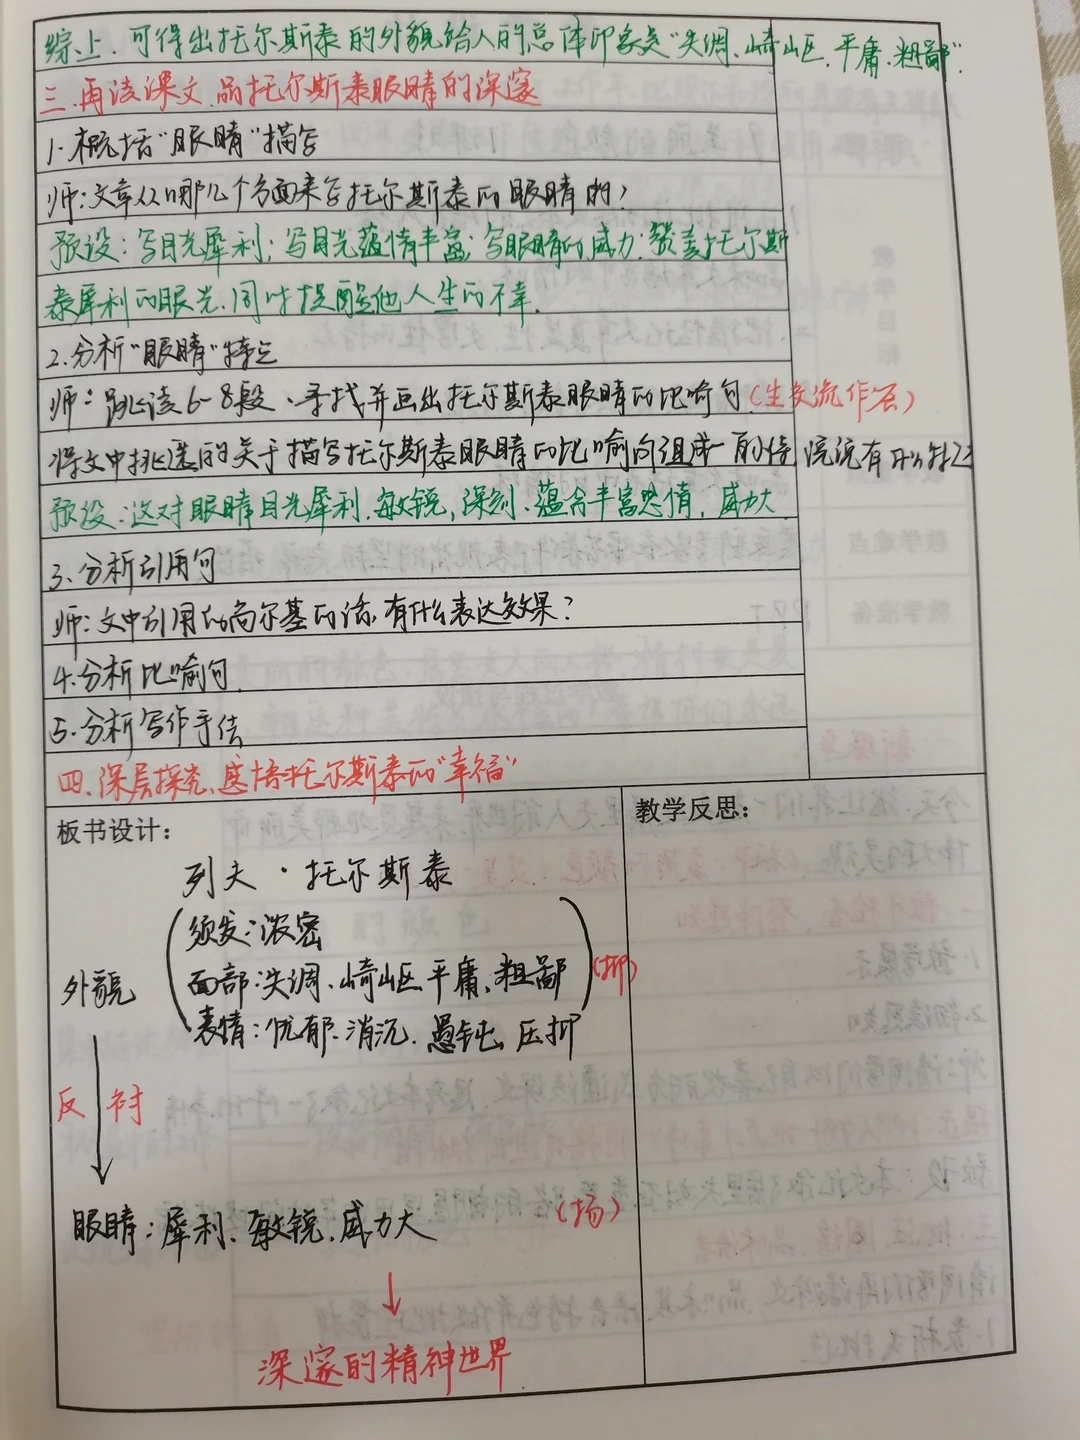 综上,可得出托尔斯泰的外貌给人的总体印象是"失调、崎岖、平庸、粗鄙".
三.再读课文,品托尔斯泰眼睛的深邃
1.概括"眼睛"描写
师:文章从哪几个方面来写托尔斯泰的眼睛的?
预设:写目光犀利;写目光蕴情丰富;写眼睛的威力;赞美托尔斯
泰犀利的眼光,同时提醒他人生的不幸.
2.分析"眼睛"特点
师:跳读6-8段,寻找并画出托尔斯泰眼睛的比喻句(生交流作答)
将文中挑选的关于描写托尔斯泰眼睛的比喻句组成一首小诗 说说有什么特点
预设:这对眼睛目光犀利,敏锐,深刻、蕴含丰富感情,威力大
3.分析引用句
师:文中引用的高尔基的话,有什么表达效果?
4.分析比喻句
5.分析写作手法
四.深层探究,感悟托尔斯泰的"幸福"
板书设计:
教学反思:
列夫·托尔斯泰
须发:浓密
外貌 面部:失调、崎岖、平庸、粗鄙 (抑)
表情:忧郁、消沉、愚钝、压抑
反衬
眼睛:犀利、敏锐、威力大 (扬)
深邃的精神世界